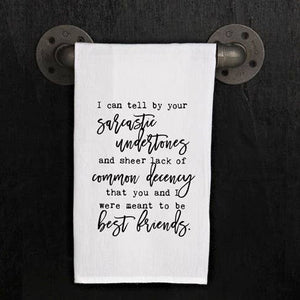 I can tell by your
sarcastic
undertones
and sheer lack of
common decency
that you and I
were meant to be
best friends.